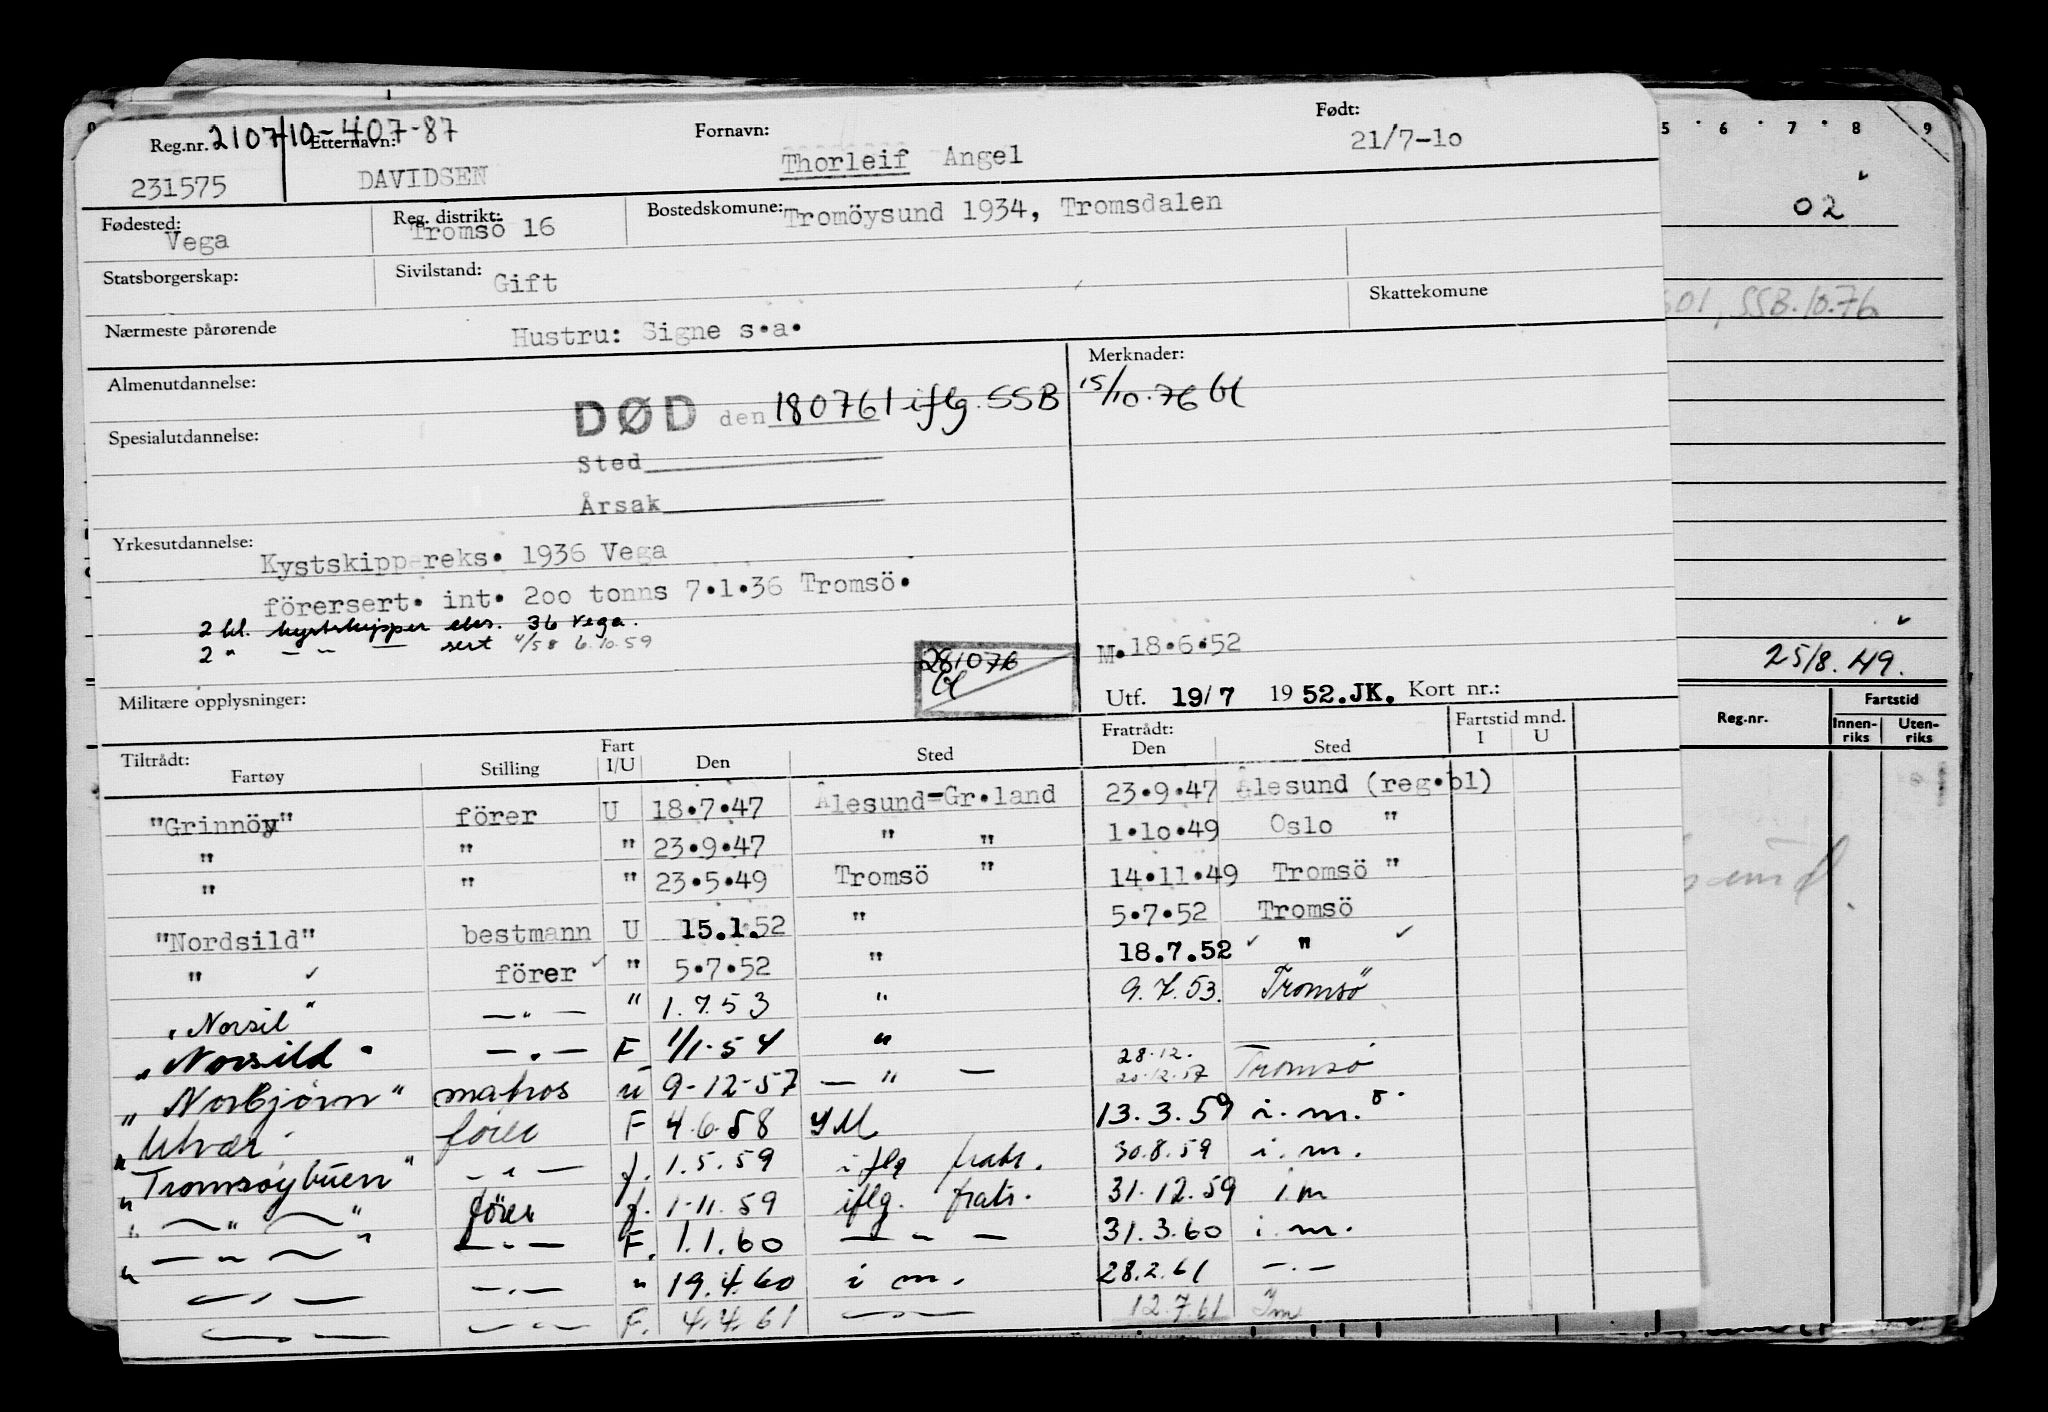 Reg.nr. 210710-407-87 Etternavn: Fornavn: Født:
231575 DAVIDSEN Thorleif Angel 21/7-1o
Fødested: Vega Reg. distrikt: Tromsö 16 Bostedskomune: Tromöysund 1934, Tromsdalen
Statsborgerskap: Sivilstand: Gift
Skattekomune
Nærmeste pårørende Hustru: Signe s.a.
Almenutdannelse: Merknader:
DØD den 180761 iflg. SSB 15/10.76 bl
Spesialutdannelse:
Sted
Årsak
Yrkesutdannelse: Kystskippereks. 1936 Vega
förersert. int. 2oo tonns 7.1.36 Tromsö.
2 kl. kystskipper eks. 36 Vega.
2 " — " — sert 4/58 6.10.59
281076 bl
M. 18.6.52
Militære opplysninger: Utf. 19/7 1952.JK. Kort nr.:
Tiltrådt: Fart Fratrådt: Fartstid mnd.
Fartøy Stilling I/U Den Sted Den Sted I U
"Grinnöy" förer U 18.7.47 Ålesund-Gr.land 23.9.47 Ålesund (reg.bl)
" " " 23.9.47 " " 1.1o.49 Oslo "
" " " 23.5.49 Tromsö " 14.11.49 Tromsö "
"Nordsild" bestmann U 15.1.52 " 5.7.52 Tromsö
" ✓ förer ✓ " 5.7.52 " 18.7.52 ✓ " ✓
"Norsil" — " — " 1.7.53 " 9.7.53. Tromsö
"Norsild" — " — F 1/1-54 "
"Norbjørn" matros u 9-12-57 — " — 28.12. 20.12.57 Tromsø
"Utvær" fører F 4.6.58 YM 13.3.59 i.m. 8.
"Tromsøybuen" — " — f. 1.5.59 iflg fratr. 30.8.59 i.m.
" — " — " förer f. 1-11.59 iflg. fratr. 31.12.59 i m
— " — " — " — F. 1.1.60 — " — 31.3.60 i.m.
" — " — — " — " 19.4.60 i m. 28.2.61 — " —
— " — — " — F. 4.4.61 — " — 12.7.61 Im
5 6 7 8 9
02 ✓
601, SSB.10.76
✓
25/8.49.
Reg.nr. Fartstid
Innenriks Utenriks